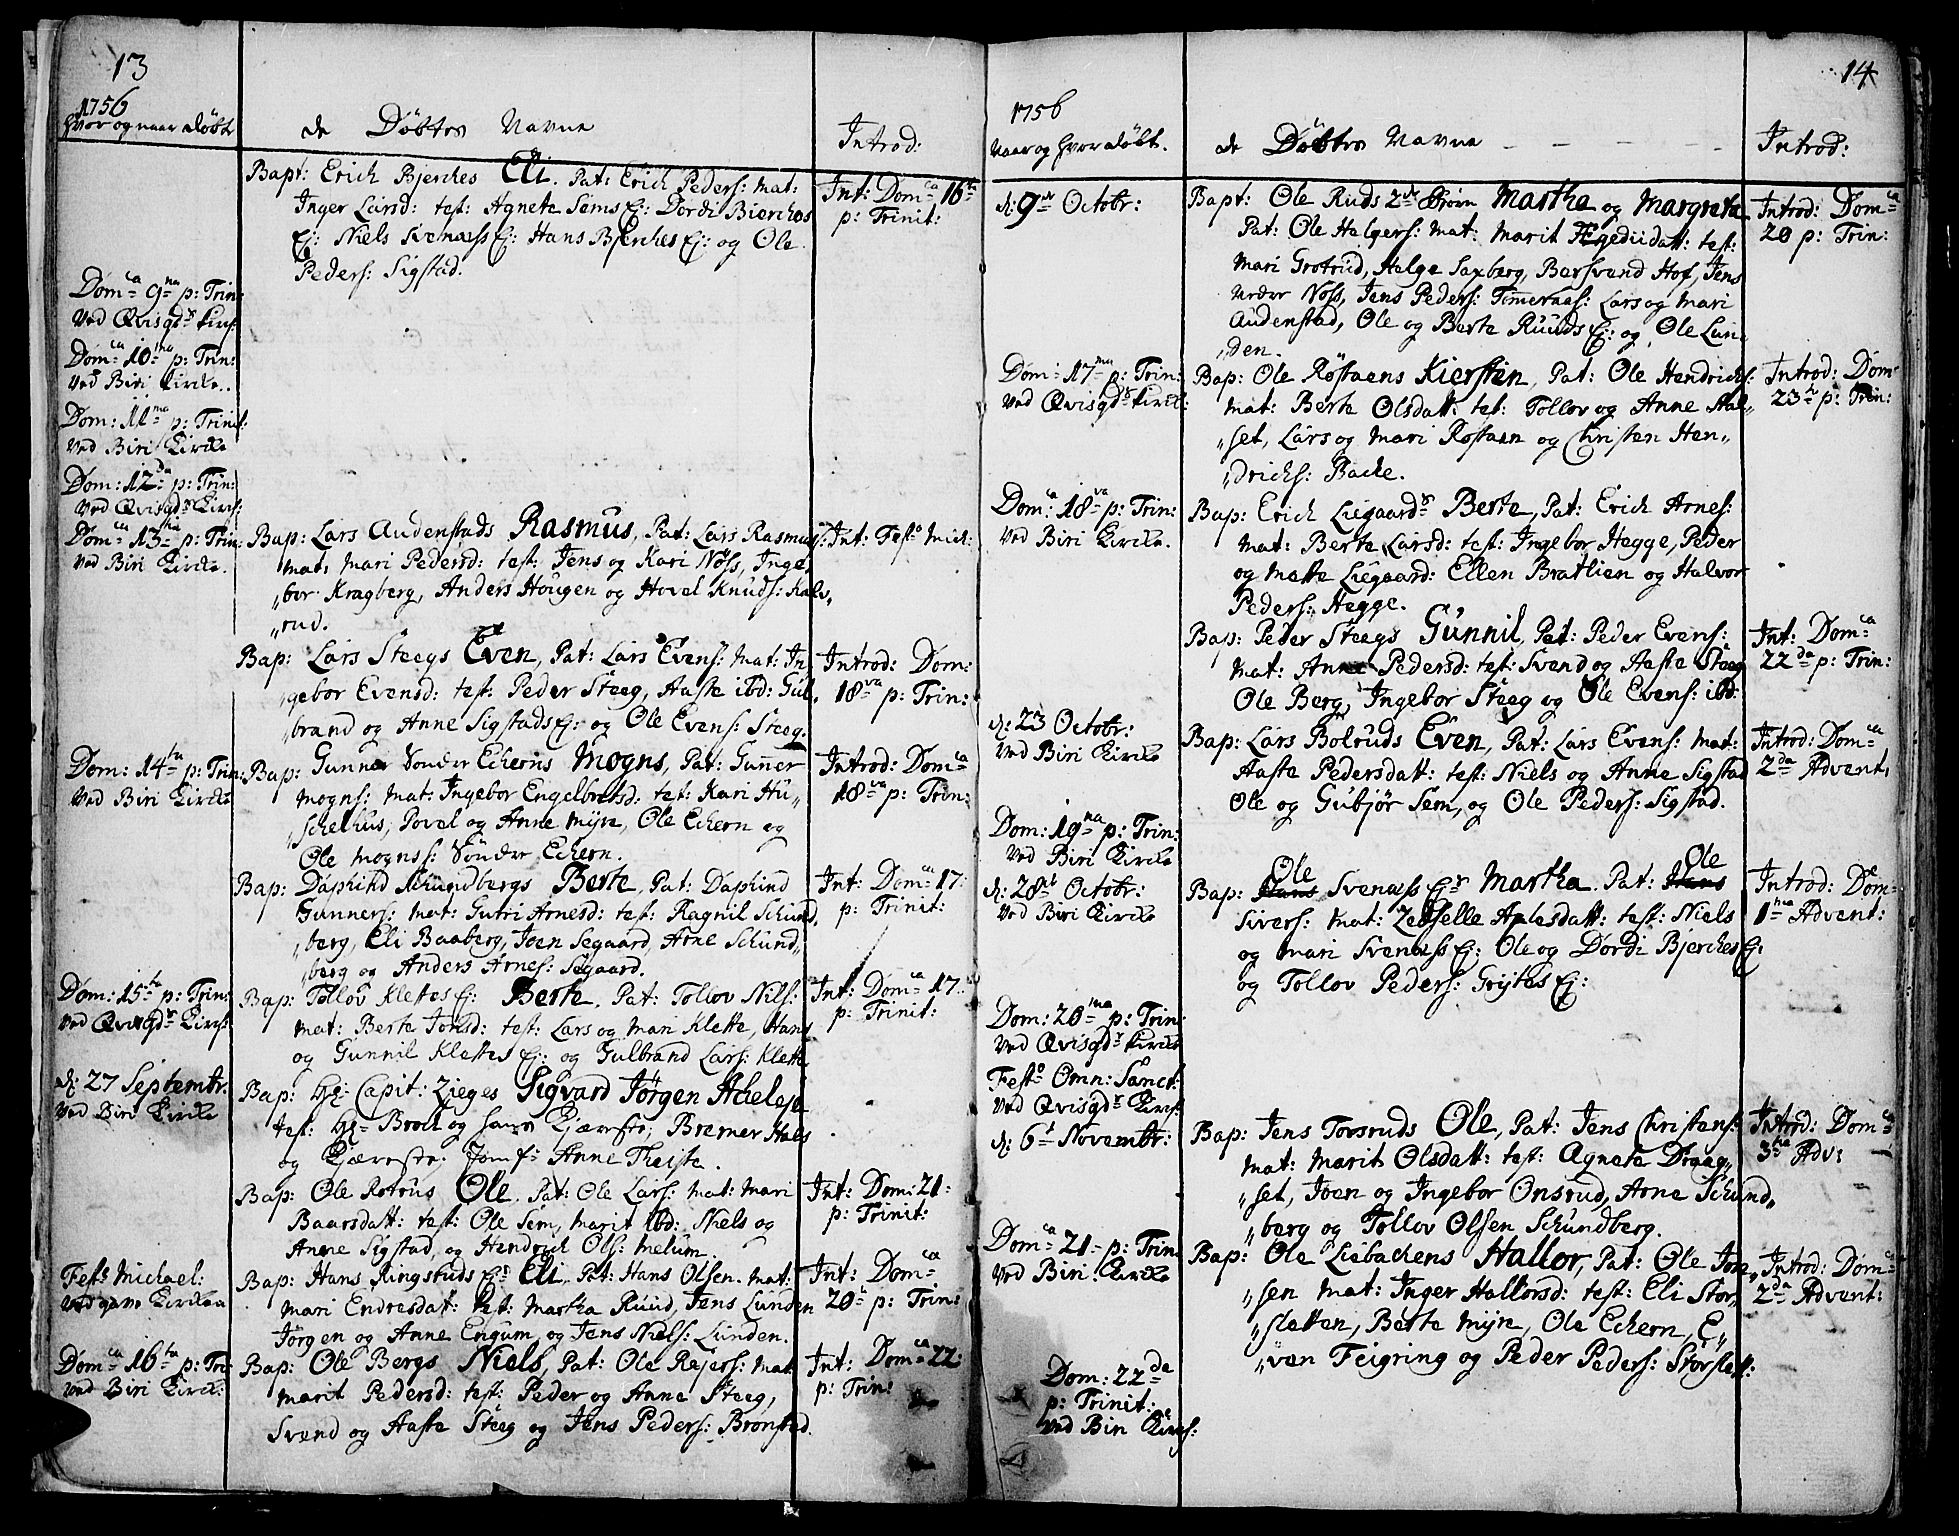 13
1756
hvor og naar døbt
de Døbtes Navne
Introd:
Bapt: Erich Bjerches Eli. Pat: Erich Peders: mat:
Inger Larsd: test: Agnete Sems Ej: Dordi Bierches
Ej: Niels Svenæss Ej: Hans Bjerches Ej: og Ole
Peders: Sigstad.
Int: Dom:ca 16ta
p: Trinit:
Dom:ca 9na p: Trin:
Ved Qvisgds Kirch:
Dom:ca 10ma p: Trin:
Ved Biri Kircke.
Dom: 11ma p: Trinit:
Ved Biri Kircke
Dom: 12da p: Trin:
Ved Qvisgds Kirch:
Dom:ca 13tia p: Trin:
Ved Biri Kircke.
Bap: Lars Audenstads Rasmus, Pat: Lars Rasmus:
mat: Mari Pedersd: test: Jens og Kari Nøss, Inge,
"bor Kragberg, Anders Hougen og Hovel Knuds: Kals,
"rud.
Int: Festo Mich:
Bap: Lars Steegs Even, Pat: Lars Evens: Mat: In,
"gebor Evensd: test: Peder Steeg, Aaste ibd: Gul,
"brand og Anne Sigstads Ej: og Ole Evens: Steeg.
Introd: Dom:
18va p: Trin:
Dom: 14ta p: Trin:
Ved Biri Kircke
Bap: Gunner Sønder Echerns Mogns, Pat: Gunner
Mogns: mat: Ingebor Engelbretsd: test: Kari Hu,,
"schelhus, Povel og Anne Myre, Ole Echern og
Ole Mognss: Sønder Echern.
Introd: Dom:ca
18va p: Trin:
Bap: Daphind Schundbergs Berte, Pat: Daphind
Gunners: mat: Gutri Arnesd: test: Ragnil Schund,
"berg, Eli Baaberg, Joen Segaard, Arne Schund,,
"berg og Anders Arnes: Segaard.
Int: Dom:ca 17:
p: Trinit:
Dom: 15ta p: Trin:
Ved Qvisgds Kirch:
Bap: Tollov Klettes Ej: Berte. Pat: Tollov Nils:
mat: Berte Jonsd: test: Lars og Mari Klette, Hans
og Gunnil Klettes Ej: og Gulbrand Lars: Klette
Int: Dom:ca 17
p: Trinit:
d: 27 Septembr.
Ved Biri Kircke
Bap: Hr: Capit: Zieges Sigvard Jørgen
test: Hr: Broch og hans Kjæreste, Bremer
og Kjæreste, Jomf: Anne Theiste.
Bap: Ole Roterus Ole. Pat: Ole Lars: mat: Mari
Baarsdatt: test: Ole Sem, Marit ibd: Niels og
Anne Sigstad, og Hendrich Ols: Melum.
Int: Dom: 21
p: Trinit:
Festo Michael:
Bap: Hans Ringstuds Ejs Eli, Pat: Hans Olsen. mat:
Mari Endresdat: test: Martha Ruud, Jens Lunden
Jørgen og Anne Engum, og Jens Niels: Lunden.
Int: Dom:ca
20 p: Trin:
Dom:ca 16ta p: Tri:
Ved Biri Kirck:
Bap: Ole Bergs Niels, Pat: Ole Rejers: mat:
Marit Pedersd: test: Peder og Anne Steeg,
Svend og Aaste Steeg og Jens Peders: Bronsted.
Int: Dom:ca 22:
p: Trin:
14
1756
Naar og hvor døbt.
de Døbtes Navne
Introd:
d: 9de Octobr:
Bapt: Ole Ruds 2de Børn Martha og Margrete
Pat: Ole Halgers: Mat: Marit Ægediidatt: test:
Mari Grotrud, Halge Saxberg, Bersvend Hof, Jens
Neder Nøss, Jens Peders: Tømeraas: Lars og Mari
Audenstad, Ole og Berte Ruuds Ej: og Ole Lun,
"den.
Introd: Dom:ca
20 p: Trin:
Dom: 17ma p: Trin:
Ved Qvisgds Kirck:
Bap: Ole Røstaens Kiersten, Pat: Ole Hendrichs:
mat: Berte Olsdatt: test: Tollov og Anne Hal,,
"set, Lars og Mari Røstaen og Christen Hen,,
"drichs: Backe.
Introd: Dom:
23 p: Trin:
Dom:ca 18va p: Trin:
Ved Biri Kircke.
Bap: Erich Liegaards Berte, Pat: Erich Arnes:
mat: Berte Larsd: test: Ingebor Hegge, Peder
og Mette Liegaard: Ellen Bratlien og Halvor
Peders: Hegge.
Bap: Peder Steegs Gunnil, Pat: Peder Evens:
mat: Anne Pedersd: test: Svend og Aaste Steeg
Ole Berg, Ingebor Steeg og Ole Evens: ibd:
Int: Dom:ca
22da p: Trin:
d: 23 Octobr:
Ved Biri Kircke
Bap: Lars Bolruds Even, Pat: Lars Evens: mat:
Aaste Pedersdatt: test: Niels og Anne Sigstad
Ole og Gubjør Sem, og Ole Peders: Sigstad.
Introd: Dom:ca
2da Advent:
Dom: 19na p: Trin:
Ved Biri Kircke
d: 28 Octobr:
Ved Biri Kircke
Ole Ole
Bap: Hans Svenæss Ejs Martha. Pat: Hans
Sivers: mat: Zesselle Aplesdatt: test: Niels
og Mari Svenæss Ej: Ole og Dordi Bjerches Ej:
og Tollov Peders: Grytes Ej:
Introd: Dom:
1ma Advent:
Dom: 20ma p: Trin:
Ved Qvisgds Kircke
Festo Omn: Sanct:
Ved Qvisgds Kirck:
d: 6t Novembr:
Bap: Jens Torsruds Ole, Pat: Jens Christens:
mat: Marit Olsdatt: test: Agnete Draag,,
"set, Joen og Ingebor Onsrud, Arne Schund,,
"berg og Tollov Olsen Schundberg.
Introd: Dom:ca
3tia Adv:
Dom:ca 21 p: Trin:
Ved Biri Kircke
Bap: Ole Liebachens Hallor, Pat: Ole Jon,,
"sen mat: Inger Hallorsd: test: Eli Stor,,
"sletten, Berte Myre, Ole Echern, E,,
"ven Feigring og Peder Peders: Storslett:
Introd: Dom:ca
2da Advent:
Dom: 22da
p: Trinit:
Ved Biri Kirch: